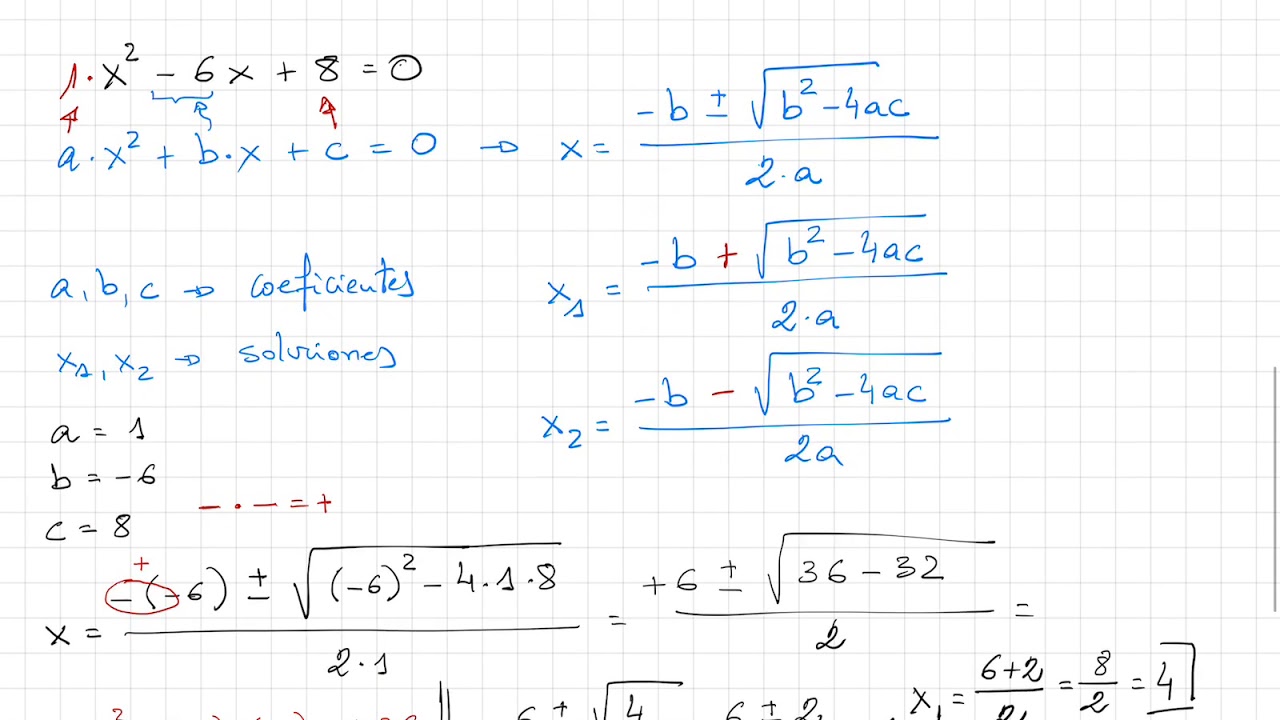 1·x² - 6x + 8 = 0
a·x² + b·x + c = 0 → x = (-b ± √(b² - 4ac)) / (2·a)
a, b, c → coeficientes
x₁ = (-b + √(b² - 4ac)) / (2·a)
x₁, x₂ → soluciones
x₂ = (-b - √(b² - 4ac)) / (2a)
a = 1
b = -6
- · - = +
c = 8
+
x = (-(-6) ± √((-6)² - 4·1·8)) / (2·1) = (+6 ± √(36 - 32)) / 2 =
x₁ = (6+2) / 2 = 8/2 = 4
6 ± √4
6 ± 2